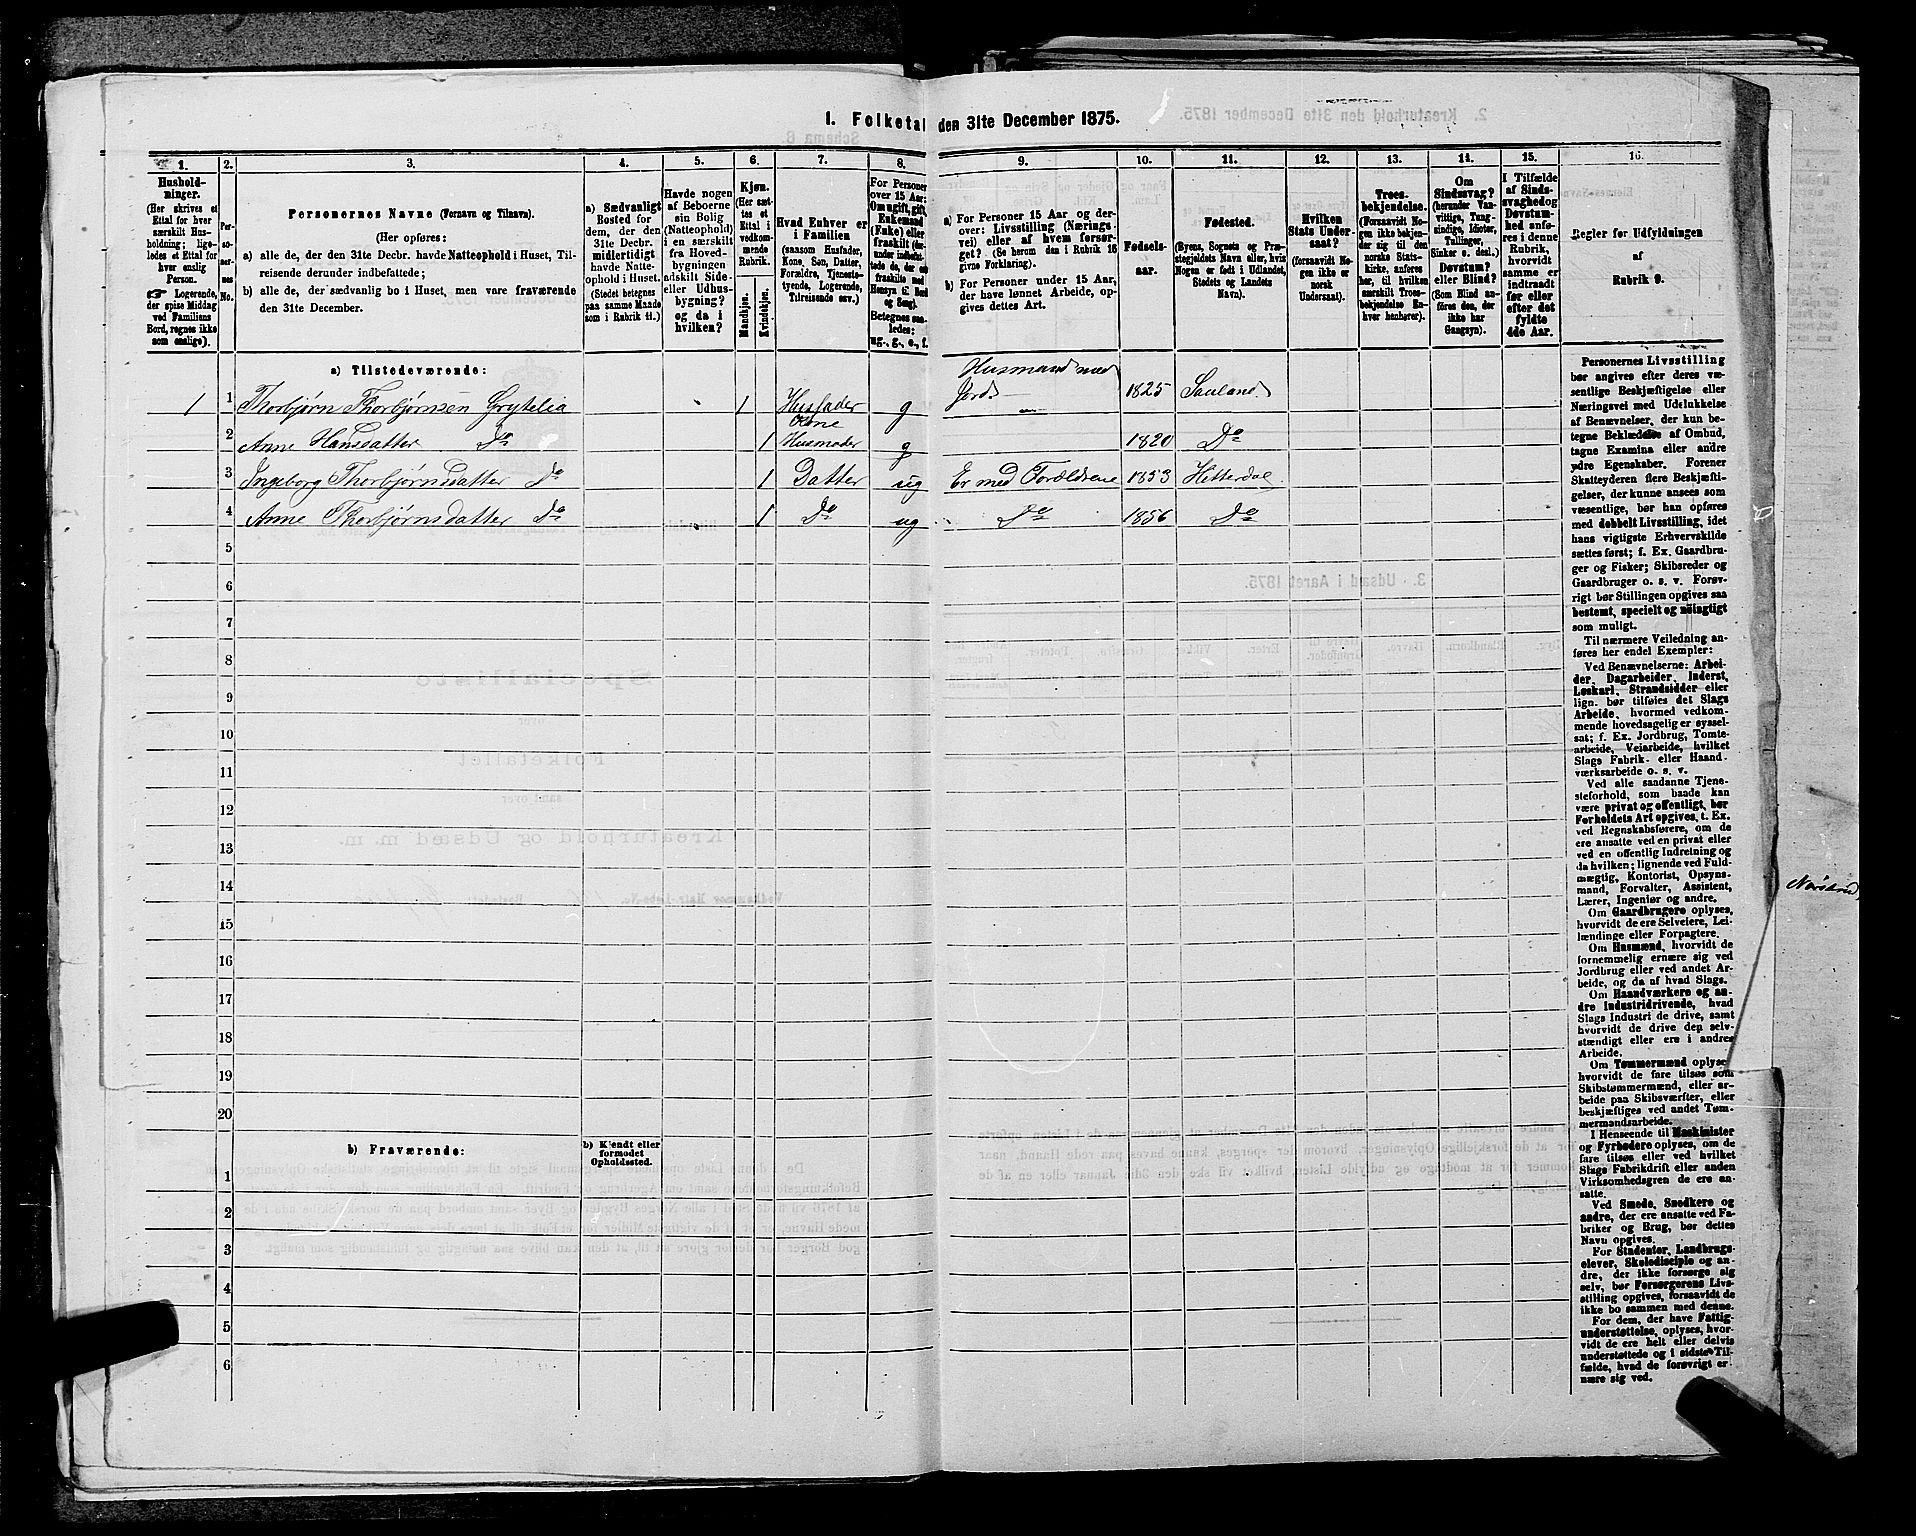 1. Folketal den 31te December 1875.
1. 2. 3. 4. 5. 6. 7. 8. 9. 10. 11. 12. 13. 14. 15. 16.
Hushold-
ninger.
(Her skrives et
Ettal for hver
særskilt Hus-
holdning; lige-
ledes et Ettal for
hver enslig
Person.
☞ Logerende,
der spise Middag
ved Familiens
Bord, regnes ikke
som enslige).
Per-
so-
ner-
nes
No.
Personernes Navne (Fornavn og Tilnavn).
(Her opføres:
a) alle de, der den 31te Decbr. havde Natteophold i Huset, Til-
reisende derunder indbefattede;
b) alle de, der sædvanlig bo i Huset, men vare fraværende
den 31te December.
a) Sædvanligt
Bosted for
dem, der den
31te Decbr.
midlertidigt
havde Natte-
ophold i Huset.
(Stedet betegnes
paa samme Maade
som i Rubrik 11.)
Havde nogen
af Beboerne
sin Bolig
(Natteophold)
i en særskilt
fra Hoved-
bygningen
adskilt Side-
eller Udhus-
bygning?
og da i
hvilken?
Kjøn.
(Her sæt-
tes et
Ettal i
vedkom-
mende
Rubrik.
Mandkjøn.
Kvindekjøn.
Hvad Enhver er
i Familien
(saasom Husfader,
Kone, Søn, Datter,
Forældre, Tjeneste-
tyende, Logerende,
Tilreisende osv.)
For Personer
over 15 Aar:
Om ugift, gift,
Enkemand
(Enke) eller
fraskilt
Betegnes saa-
ledes:
ug., g., e., f.
a) For Personer 15 Aar og der-
over: Livsstilling (Nærings-
vei) eller af hvem forsør-
get? (Se herom den i Rubrik 16
givne Forklaring).
b) For Personer under 15 Aar,
der have lønnet Arbeide, op-
gives dettes Art.
Fødsels-
aar.
Fødested.
(Byens, Sognets og Præ-
stegjeldets Navn eller, hvis
Nogen er født i Udlandet,
Stedets og Landets
Navn).
Hvilken
Stats Under-
saat?
(forsaavidt No-
gen ikke er
norsk
Undersaat).
Troes-
bekjendelse.
(Forsaavidt No-
gen ikke bekjen-
der sig til den
norske Stats-
kirke, anføres
her, til hvilken
særskilt Troes-
bekjendelse En-
hver henhører).
Om
Sindssvag?
(herunder Van-
vittige, Tung-
sindige, Idioter,
Tullinger,
Sinker o. desl.)
Døvstum?
eller Blind?
(Som Blind an-
føres den, der
ikke har
Gangsyn).
I Tilfælde
af Sinds-
svaghed og
Døvstum-
hed anfø-
res i denne
Rubrik,
hvorvidt
samme er
indtraadt
før eller
efter det
fyldte
4de Aar.
Regler for Udfyldningen
af
Rubrik 9.
a) Tilstedeværende:
Husmand med
1 1 Thorbjørn Thorbjørnsen Grytelia 1 Husfader g Jord 1825 Sauland
Kone
2 Anne Hansdatter Do 1 Husmoder g 1820 Do
3 Ingeborg Thorbjørnsdatter Do 1 Datter ug Er med Forældrene 1853 Hitterdal
4 Anne Thorbjørnsdatter Do 1 Do ug Do 1856 Do
5
6
7
8
9
10
11
12
13
14
15
16
17
18
19
20
b) Fraværende:
b) Kjendt eller
formodet
Opholdssted.
1
2
3
4
5
6
Personernes Livsstilling
bør angives efter deres væ-
sentlige Beskjæftigelse eller
Næringsvei med Udelukkelse
af Benævnelser, der kun be-
tegne Beklædelse af Ombud,
tagne Examina eller andre
ydre Egenskaber. Forener
Skatteyderen flere Beskjæfti-
gelser, der kunne ansees som
væsentlige, bør han opføres
med dobbelt Livsstilling, idet
hans vigtigste Erhvervskilde
sættes først; f. Ex. Gaardbru-
ger og Fisker; Skibsreder og
Gaardbruger o. s. v. Forøv-
rigt bør Stillingen opgives saa
bestemt, specielt og nøiagtigt
som muligt.
Til nærmere Veiledning an-
føres her endel Exempler:
Ved Benævnelserne: Arbei-
der, Dagarbeider, Inderst,
Løskarl, Strandsidder eller
lign. bør tilføies det Slags
Arbeide, hvormed vedkom-
mende hovedsagelig er syssel-
sat; f. Ex. Jordbrug, Tomte-
arbeide, Veiarbeide, hvilket
Slags Fabrik- eller Haand-
værksarbeide o. s. v.
Ved alle saadanne Tjene-
steforhold, som baade kan
være privat og offentligt, bør
Forholdets Art opgives, t. Ex.
ved Regnskabsførere, om de
ere ansatte ved en privat eller
ved en offentlig Indretning og
da hvilken; lignende ved Fuld-
mægtig, Kontorist, Opsyns-
mand, Forvalter, Assistent,
Lærer, Ingeniør og andre.
Om Gaardbrugere oplyses,
hvorvidt de ere Selveiere, Lei-
lændinge eller Forpagtere.
Om Husmænd, hvorvidt de
fornemmelig ernære sig ved
Jordbrug eller ved andet Ar-
beide, og da af hvad Slags.
Om Haandværkere og an-
dre Industridrivende, hvad
Slags Industri de drive, samt
hvorvidt de drive den selv-
stændigt eller ere i andres
Arbeide.
Om Tømmermænd oplyses
hvorvidt de fare tilsøs som
Skibstømmermænd, eller ar-
beide paa Skibsværfter, eller
beskjæftiges ved andet Tøm-
mermandsarbeide.
I Henseende til Maskinister
og Fyrbødere oplyses, om de
fare tilsøs eller ved hvilket
Slags Fabrikdrift eller anden
Virksomhedsgren de ere an-
satte.
Ved Smede, Snedkere og
andre, der ere ansatte ved Fa-
briker og Brug, bør dettes
Navn opgives.
For Studenter, Landbrugs-
elever, Skoledisciple og an-
dre, der ikke forsørge sig
selv, bør Forsørgerens Livs-
stilling opgives, forsaavidt de
ikke bo sammen med denne.
For dem, der have Fattig-
understøttelse, oplyses, hvor-
vidt de ere helt eller delvis
understøttede og i sidste Til-
fælde, hvad de forøvrigt er-
nære sig ved.